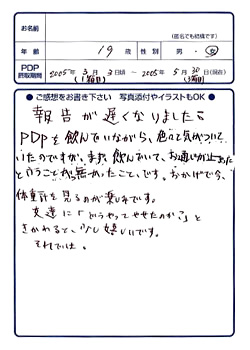 お名前
(匿名でも結構です)
年齢 19歳 性別 男・女
PDP摂取期間 2005年3月3日頃 〜 2005年5月30日(現在)
●ご感想をお書き下さい 写真添付やイラストもOK●
報告が遅くなりました
PDPを飲んでいながら、色々と気がついて
いたのですが、まず、飲んでいて、お通じが止まった
ということが無かったこと、です。おかげで今、
体重計を見るのが楽しみです。
友達に「どうやってやせたのか?」と
きかれると、少し嬉しいです。
それでは。